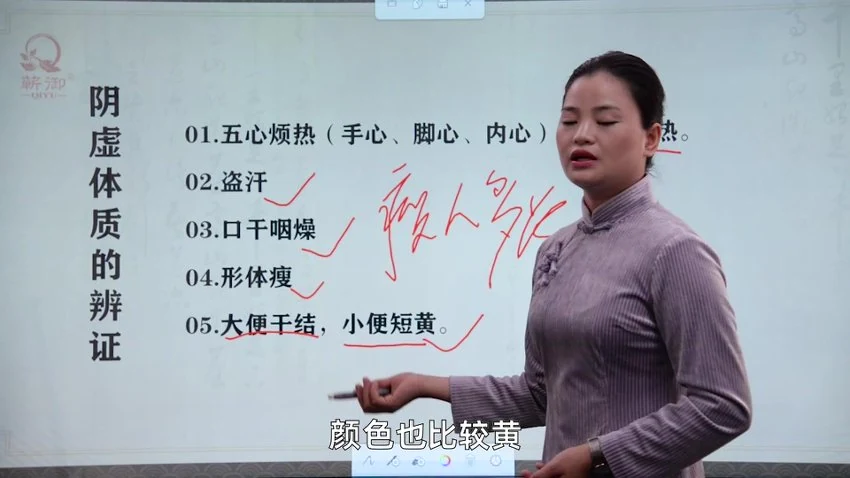 蕲御®
QIYU
阴虚体质的辨证
01.五心烦热（手心、脚心、内心）
热。
02.盗汗
03.口干咽燥
04.形体瘦
05.大便干结，小便短黄。
瘦人多火
颜色也比较黄